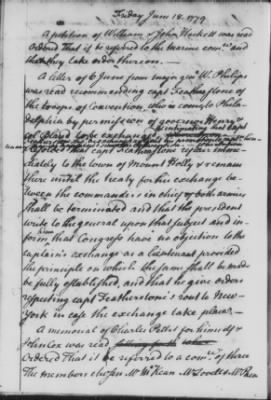 Friday June 18. 1779
A petition of William & John Hockett was read
Ordered That it be referred to the marine comee and
that they take order thereon.
A letter of 6 June from major genl W. Philips
was read recommending capt Featherstone of
the troops of Convention, who is come to Phila-
delphia by permission of governor Henry &
col Bland to be exchanged
Ordered that capt Featherstone repair imme-
diately to the town of Mount Holly & remain
there until the treaty for his exchange be-
tween the commanders in chief of both armies
shall be terminated and that the president
write to the general upon that subject and in-
form that Congress have no objection to the
captain's exchange as a lieutenant provided
the principle on which the same shall be made
be fully established, and that he give orders
respecting capt Featherstone's rout to New-
York in case the exchange take place.
A memorial of Charles Pettit for himself &
John Cox was read
Ordered That it be referred to a comee of three
The members chosen Mr McKean Mr Lovell Mr